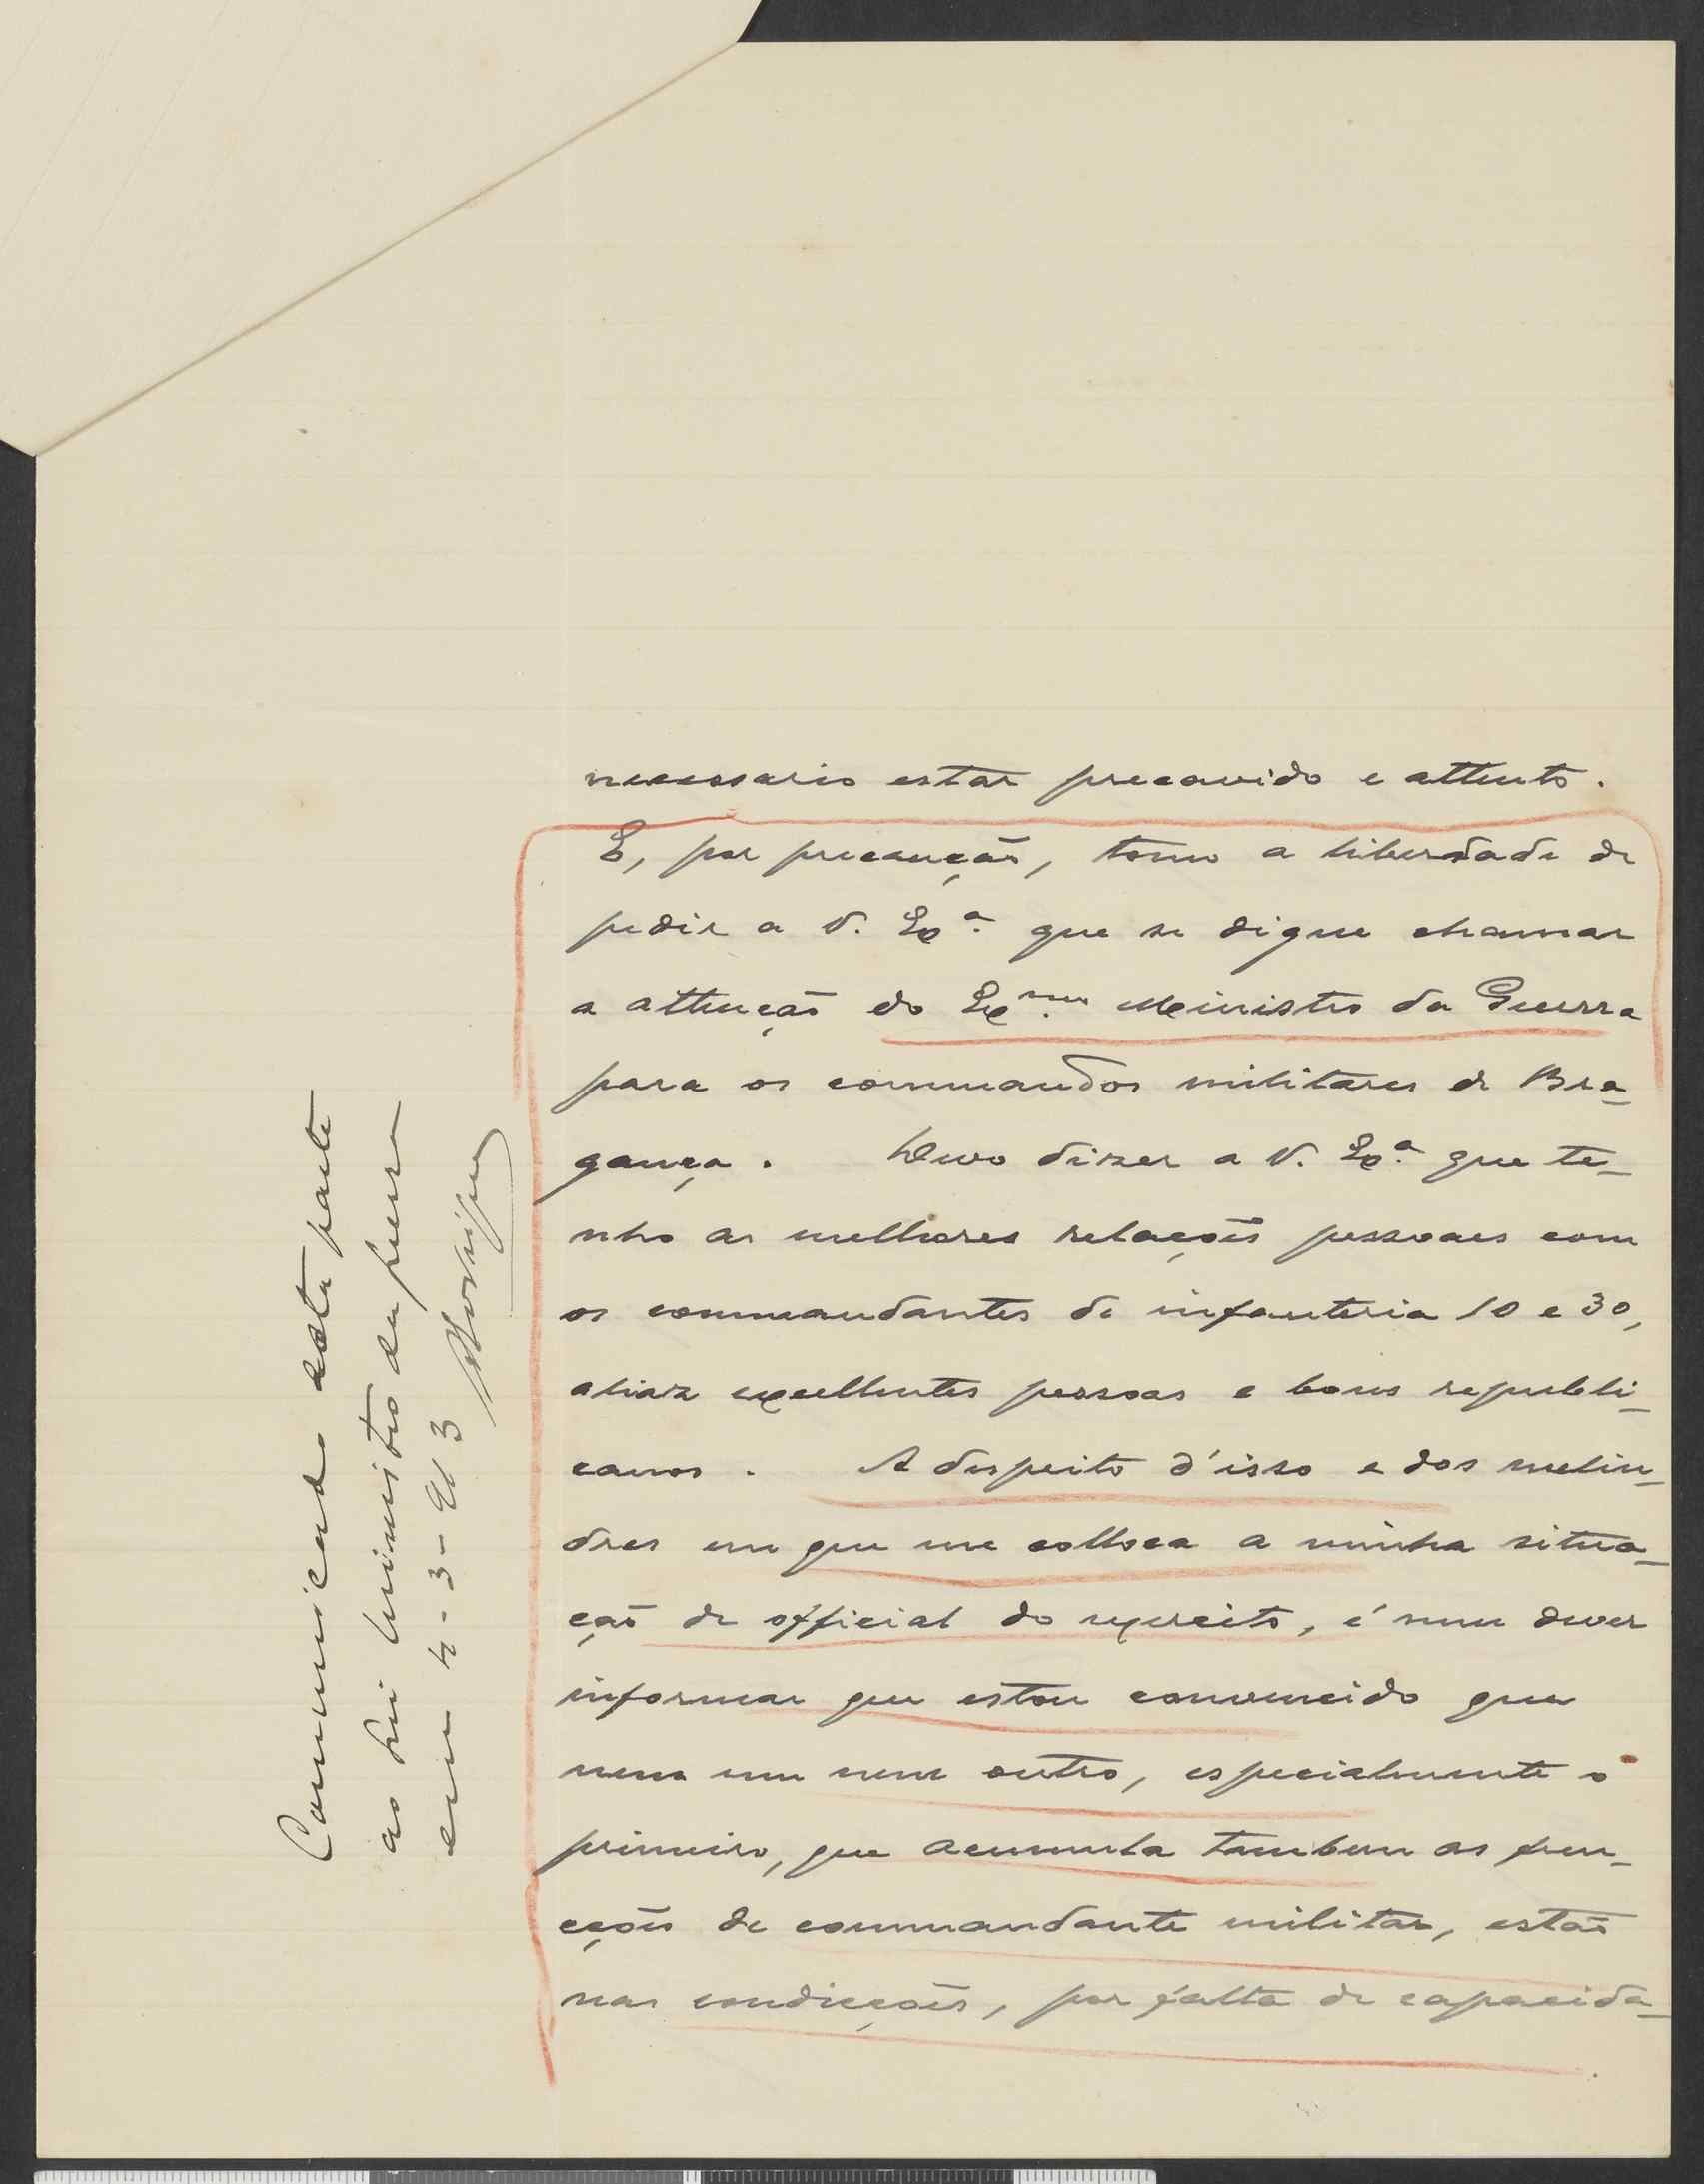 necessario estar precavido e attento.
E, por precaução, tomo a liberdade de
pedir a V. Ex.ª que se digne chamar
a attenção do Ex.mo Ministro da Guerra
para os commandos militares de Bra-
gança. Devo dizer a V. Ex.ª que te-
nho as melhores relações pessoaes com
os commandantes de infanteria 10 e 30,
aliaz excellentes pessoas e bons republi-
canos. A despeito d'isso e dos melin-
dres em que me colloca a minha situa-
ção de official do exercito, é meu dever
informar que estou convencido que
nem um nem outro, especialmente o
primeiro, que acumula tambem as fun-
cções de commandante militar, estão
nas condicções, por falta de capacida-
Communicado esta parte
ao Sr. Ministro da Guerra
em 4-3-913